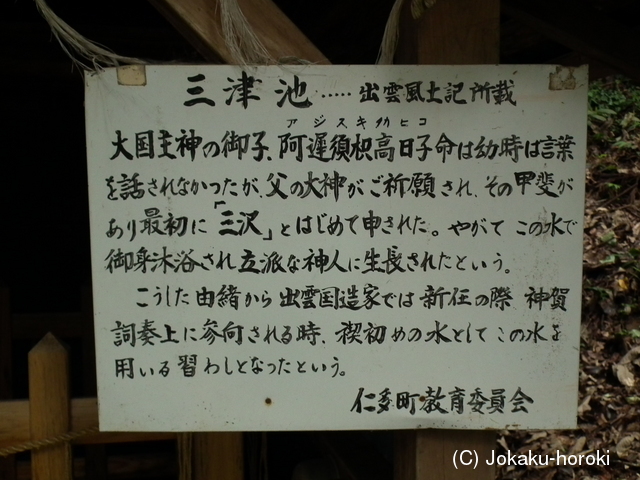 三津池‥‥‥出雲風土記所載
アジスキタカヒコ
大国主神の御子、阿遅須枳高日子命は幼時は言葉
を話されなかったが、父の大神がご祈願され、その甲斐が
あり最初に「三沢」とはじめて申された。やがてこの水で
御身沐浴され立派な神人に生長されたという。
こうした由緒から出雲国造家では新任の際 神賀
詞奏上に参向される時、禊初めの水としてこの水を
用いる習わしとなったという。
仁多町教育委員会
(C) Jokaku-horoki